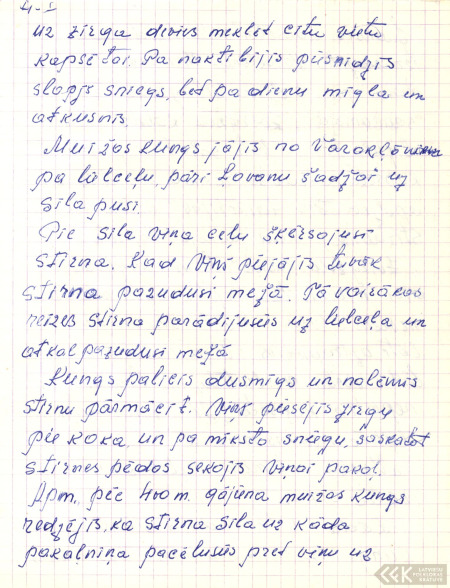 4-I
uz zirga devies meklēt citu vietu
kapsētai. Pa nakti bijis piesnidzis
slapjš sniegs, bet pa dienu migla un
atkusnis.
Muižas kungs jājis no Varakļāniem
pa lielceļu, pāri Ļovanu šadžai uz
sila pusi.
Pie sila viņa ceļu šķērsojusi
stirna. Kad viņš piejājis tuvāk
stirna pazudusi mežā. Tā vairākas
reizes stirna parādijusūs uz lielceļa un
atkal pazudusi mežā
Kungs palicis dusmīgs un nolēmis
stirnu pārmācīt. Viņš piesējis zirgu
pie koka, un pa mīksto sniegu, saskatot
stirnes pēdas sekojis viņai pakaļ.
Apm. pēc 400 m. gājuna muižas kungs
redzējis, ka stirna sila uz kāda
pakalniņa pacēlusūs pret viņu uz
LATVIEŠU
FOLKLORAS
KRĀTUVE